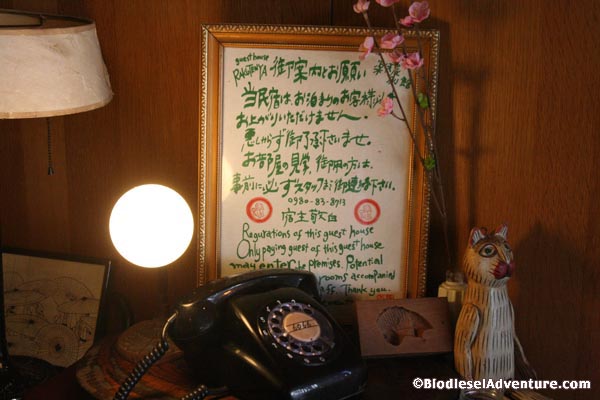 guest house
RAKUTENYA 御案内とお願い 楽天屋
当民宿は、お泊まりのお客様以外
お上がりいただけません。
悪しからず御了承下さいませ。
お部屋の見学、御用の方は、
事前に必ずスタッフにご連絡下さい。
0980-83-8713
宿主敬白
Regurations of this guest house
Only paying guest of this guest house
may enter he premises. Potential
rooms accompanied
Thank you.
©BiodieselAdventure.com